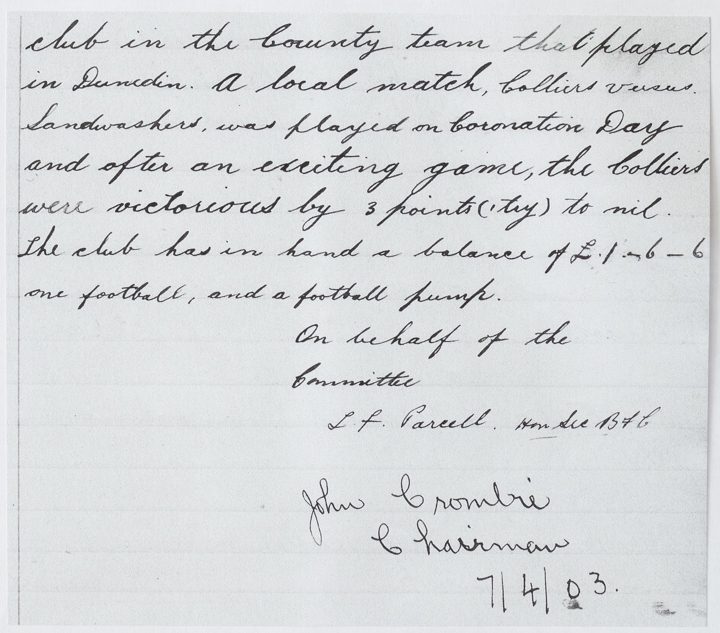 club in the County team that played
in Dunedin. A local match, Colliers versus.
Sandwashers, was played on Coronation Day
and after an exciting game, the Colliers
were victorious by 3 points (1 try) to nil.
The club has in hand a balance of £.1-6-6
one football, and a football pump.
On behalf of the
Committee
L. F. Parcell. Hon Sec BFC
John Crombie
Chairman
7/4/03.